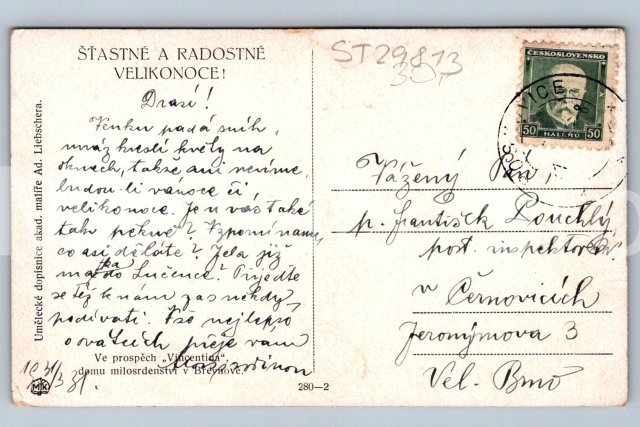 ŠŤASTNÉ A RADOSTNÉ
VELIKONOCE!
Drazí!
Venku padá sníh,
mráz kreslí květy na
oknech, takže ani nevíme,
budou-li vánoce či
velikonoce. Je u vás také
tak pěkně? Vzpomínáme,
co asi děláte? Jela již
do Lučence? Přijeďte
se též k nám zas někdy
podívati. Vše nejlepší
o svátcích přeje vám
s rodinou
Ve prospěch „Vincentina",
domu milosrdenství v Břevnově.
Umělecké dopisnice akad. malíře Ad. Liebschera.
MK
280—2
ST29813
ČESKOSLOVENSKO
50 HALÉŘŮ 50
VICE
Vážený Pán
p. František Pouchlý
post. inspektor
v Černovicích
Jeronýmova 3
Vel. Brno